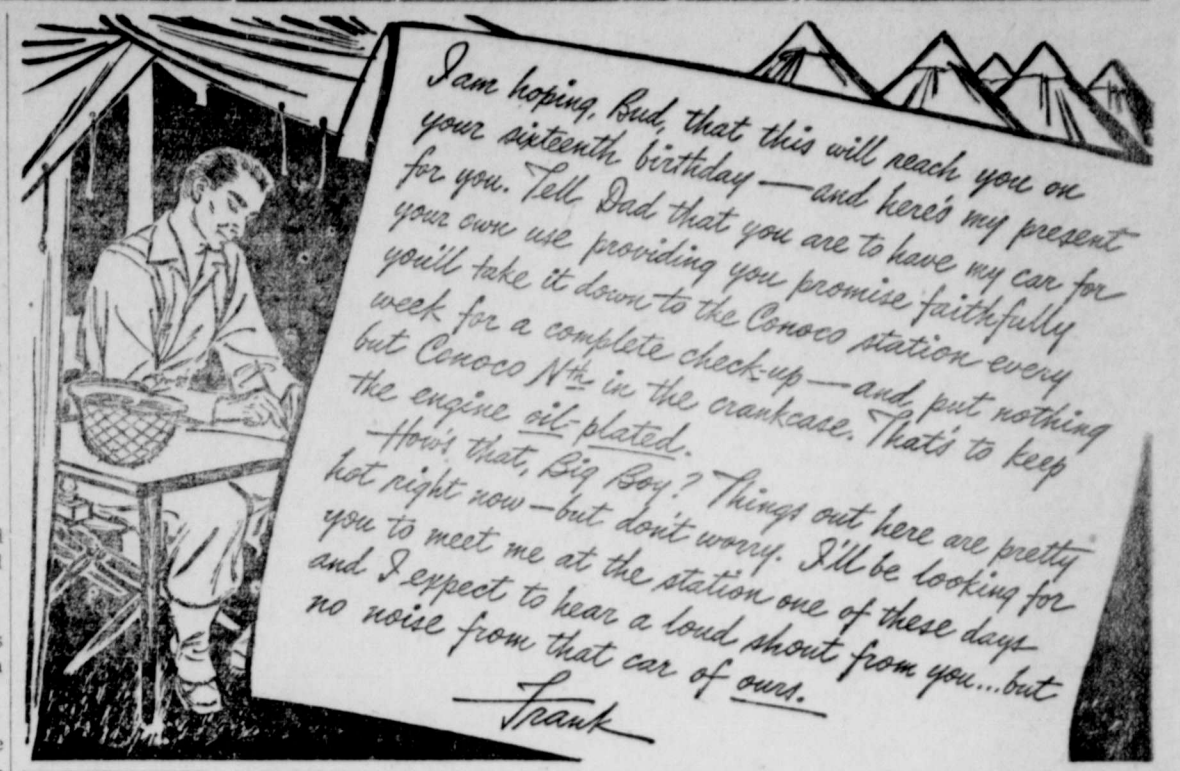 I am hoping, Bud, that this will reach you on
your sixteenth birthday — and here's my present
for you. Tell Dad that you are to have my car for
your own use providing you promise faithfully
you'll take it down to the Conoco station every
week for a complete check-up — and put nothing
but Conoco Nth in the crankcase. That's to keep
the engine oil-plated.
How's that, Big Boy? Things out here are pretty
hot right now — but don't worry. I'll be looking for
you to meet me at the station one of these days
and I expect to hear a loud shout from you...but
no noise from that car of ours.
Frank